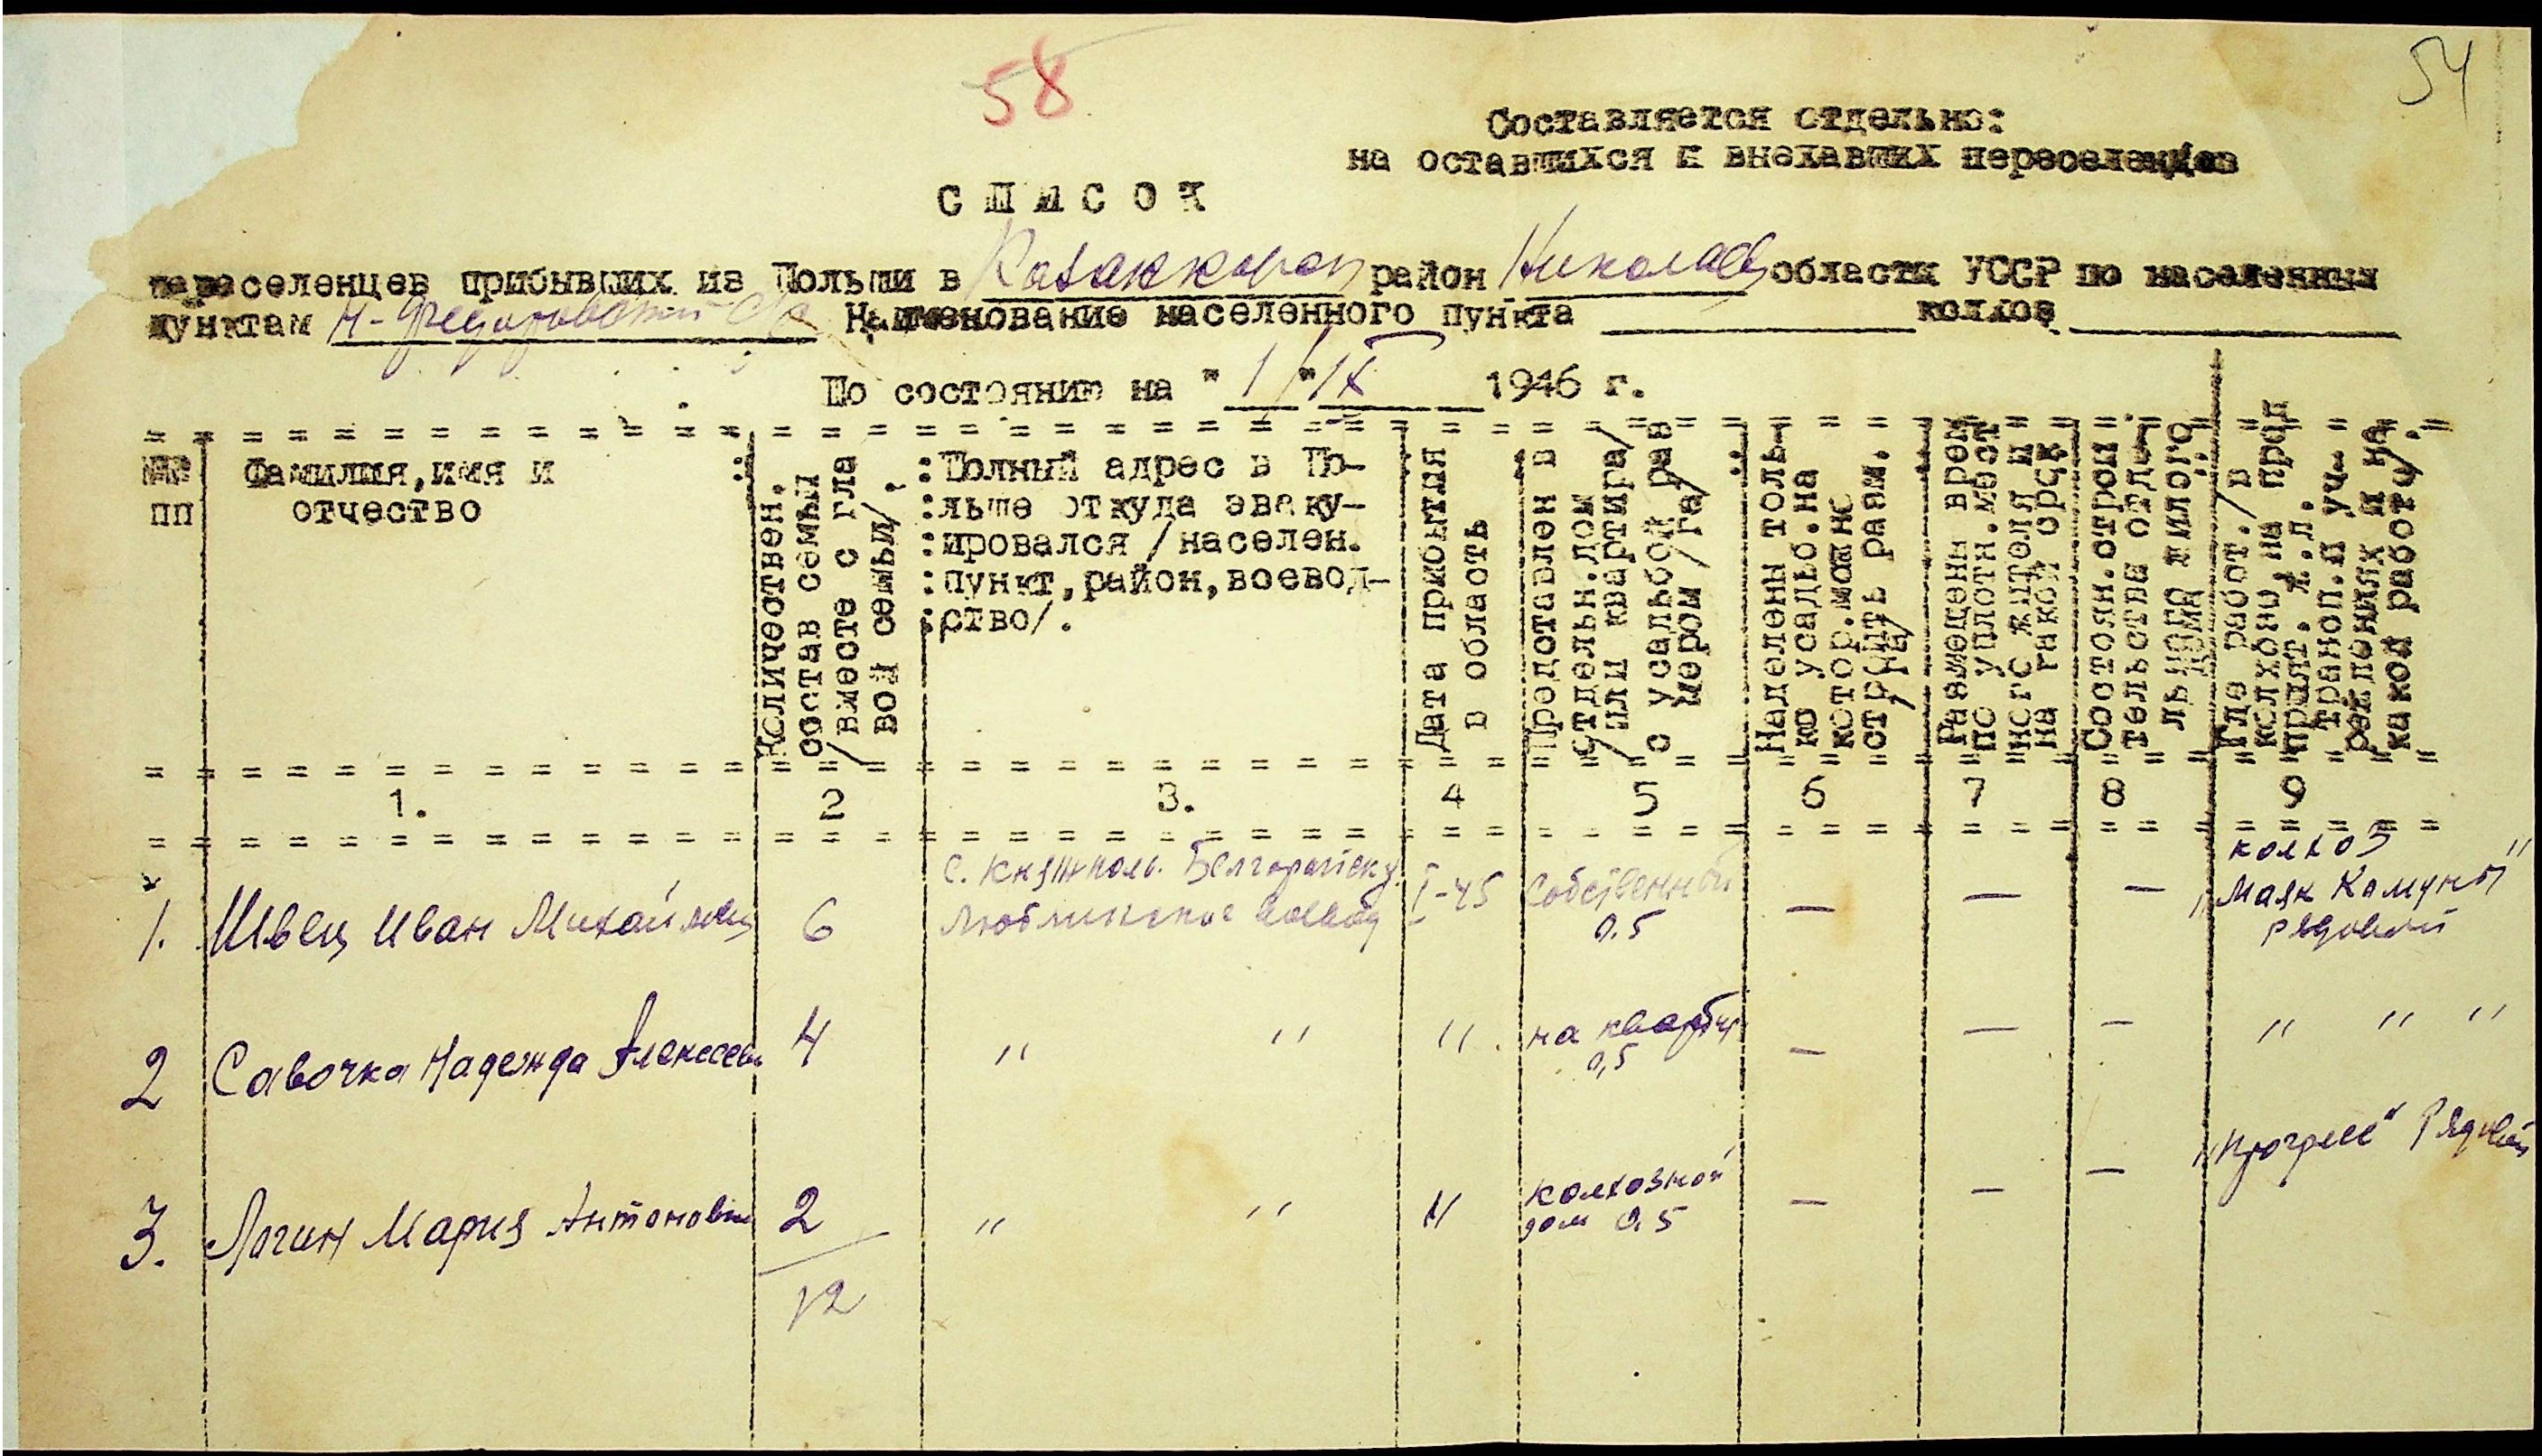 58
54
Составляется отдельно:
на оставшихся и внехавших переселенцев
СПИСОК
переселенцев прибывших из Польши в район Николаев области УССР по населенным
пунктам Н-Федоровский с/с Наименование населенного пункта колхоз
По состоянию на "1/"IX 1946 г.
№№ пп
Фамилия, имя и
отчество
Количествен.
состав семьи
/вместе с гла
вой семьи/.
:Полный адрес в По-
:льше откуда эваку-
:ировался/населен.
:пункт,район,воевод-
:ство/.
Дата прибытия
в область
Представлен в
отдельн.дом
/или квартира/
с усадьбой раз
мером /га/
Наделены толь-
ко усадьб.на
котор.можно
строить разм.
/га/
Размещены врем
по уплотн.мест
ного жителя и
на какой срок
Состоян.строи
тельства отде-
льного жилого
дома
Где работ./в
колхозе на пред
прият. ж.д.
траноп.и уч-
реждениях и на
какой работе/.
1. 2 3. 4 5 6 7 8 9
1. Швец Иван Михайлович 6 с. Княжполь. Белгорайск. I-45 Собственный — — — колхоз
Люблинское воевод 0.5 „Маяк Комуны"
рядовой
2 Савочка Надежда Алексеевн 4 " " " на квартир — — — " " "
0,5
3. Логин Мария Антоновн 2 " " " колхозной — — — „Прогресс" Рядовой
дом 0.5
12